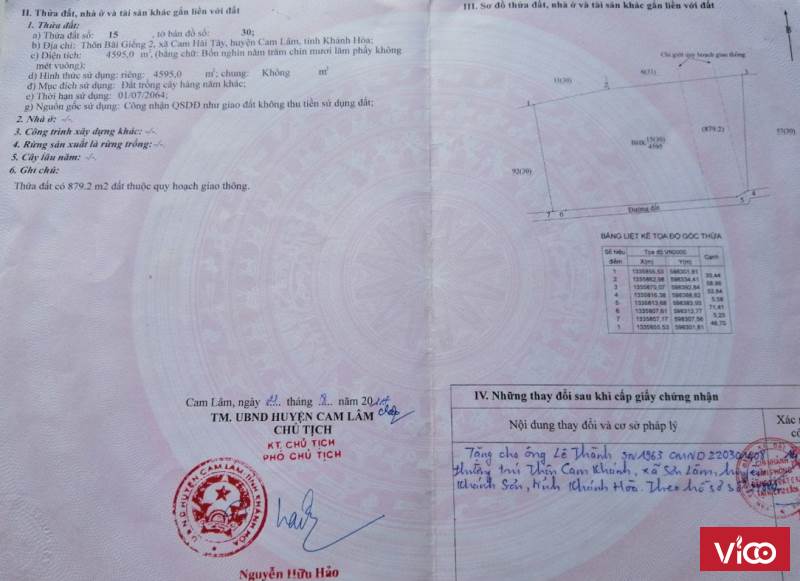 II. Thửa đất, nhà ở và tài sản khác gắn liền với đất
1. Thửa đất:
a) Thửa đất số: 15 , tờ bản đồ số: 30;
b) Địa chỉ: Thôn Bãi Giếng 2, xã Cam Hải Tây, huyện Cam Lâm, tỉnh Khánh Hòa;
c) Diện tích: 4595,0 m², (bằng chữ: Bốn nghìn năm trăm chín mươi lăm phẩy không
mét vuông);
d) Hình thức sử dụng: riêng: 4595,0 m²; chung: Không m²
đ) Mục đích sử dụng: Đất trồng cây hàng năm khác;
e) Thời hạn sử dụng: 01/07/2064;
g) Nguồn gốc sử dụng: Công nhận QSDĐ như giao đất không thu tiền sử dụng đất;
2. Nhà ở: -/-.
3. Công trình xây dựng khác: -/-.
4. Rừng sản xuất là rừng trồng: -/-.
5. Cây lâu năm: -/-.
6. Ghi chú:
Thửa đất có 879.2 m2 đất thuộc quy hoạch giao thông.
Cam Lâm, ngày tháng 8 năm 20
TM. UBND HUYỆN CAM LÂM
CHỦ TỊCH
KT. CHỦ TỊCH
PHÓ CHỦ TỊCH
U.B.N.D HUYỆN CAM LÂM TỈNH KHÁNH HÒA
Nguyễn Hữu Hảo
III. Sơ đồ thửa đất, nhà ở và tài sản khác gắn liền với đất
B
Chỉ giới quy hoạch giao thông
1
2
3
BHK 15(30)
4595
(879.2)
57(30)
92(30)
7
6
Đường đất
5
4
BẢNG LIỆT KÊ TỌA ĐỘ GÓC THỬA
Số hiệu điểm Tọa độ VN2000 Cạnh
X(m) Y(m)
1 1335855,53 598301,81
2
3
4
5
6
7
1 1335855,53 598301,81
IV. Những thay đổi sau khi cấp giấy chứng nhận
Nội dung thay đổi và cơ sở pháp lý
Xác
Tặng cho ông Lê Thành SN 1963 CMND 220301408
thường trú Thôn Cam Khánh, xã Sơn Lâm, huyện
Khánh Sơn, tỉnh Khánh Hòa. Theo hồ sơ số
VICO